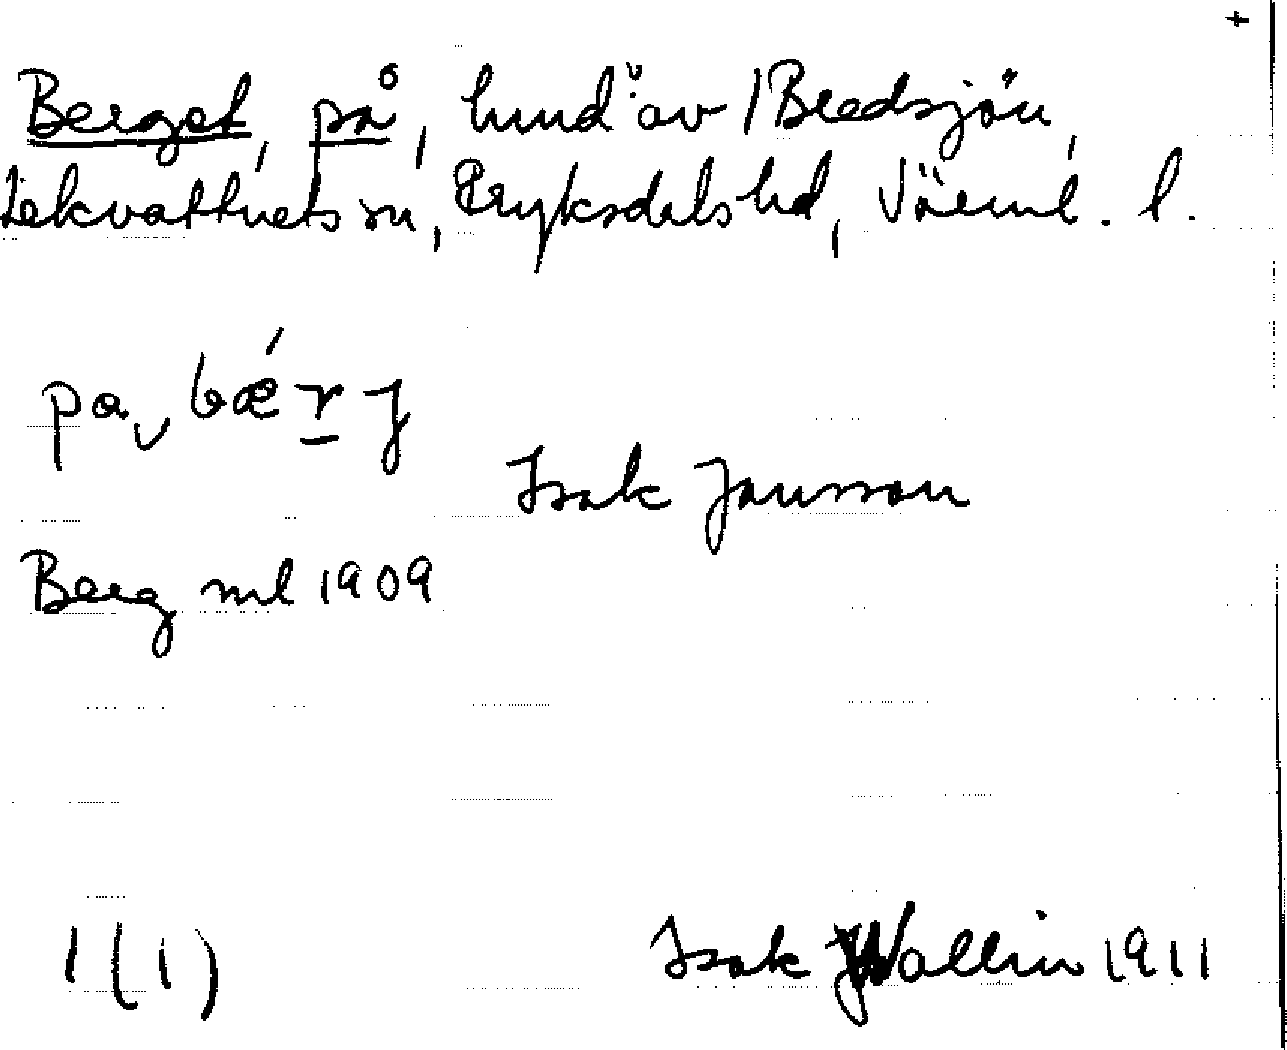 +
Berget, på, hmd av 1 Bredsjön,
Lekvattnets sn, Fryksdals hd, Värml. l.
pa bǽrj
Isak Jansson
Berg ml 1909
1 (1)
Isak Wallin 1911